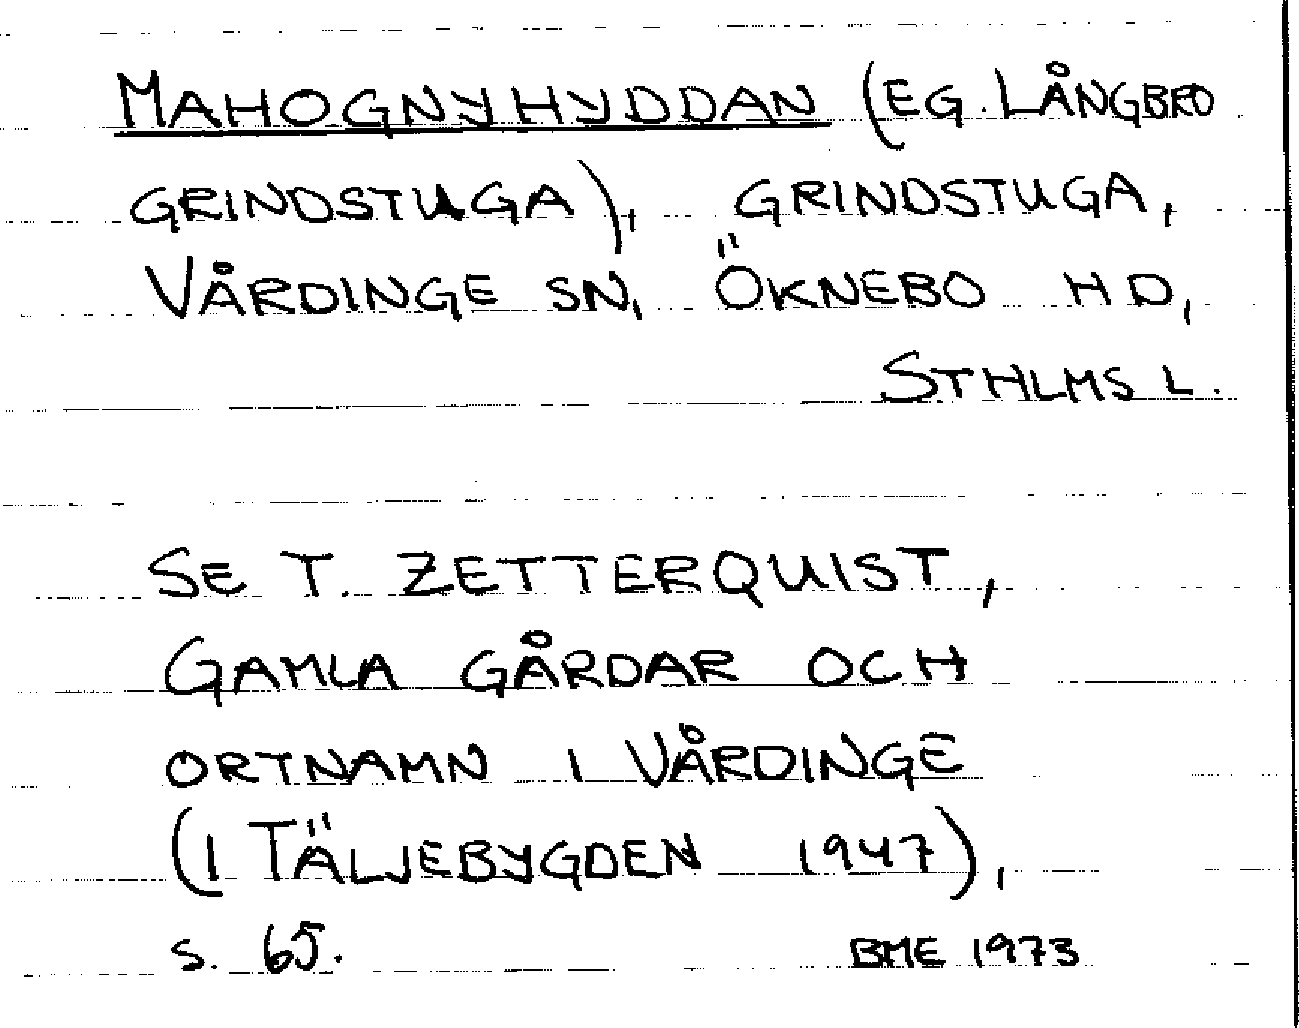 MAHOGNYHYDDAN (EG. LÅNGBRO
GRINDSTUGA), GRINDSTUGA,
VÅRDINGE SN, ÖKNEBO HD,
STHLMS L.
SE T. ZETTERQUIST,
GAMLA GÅRDAR OCH
ORTNAMN I VÅRDINGE
(I TÄLJEBYGDEN 1947),
S. 65. BME 1973